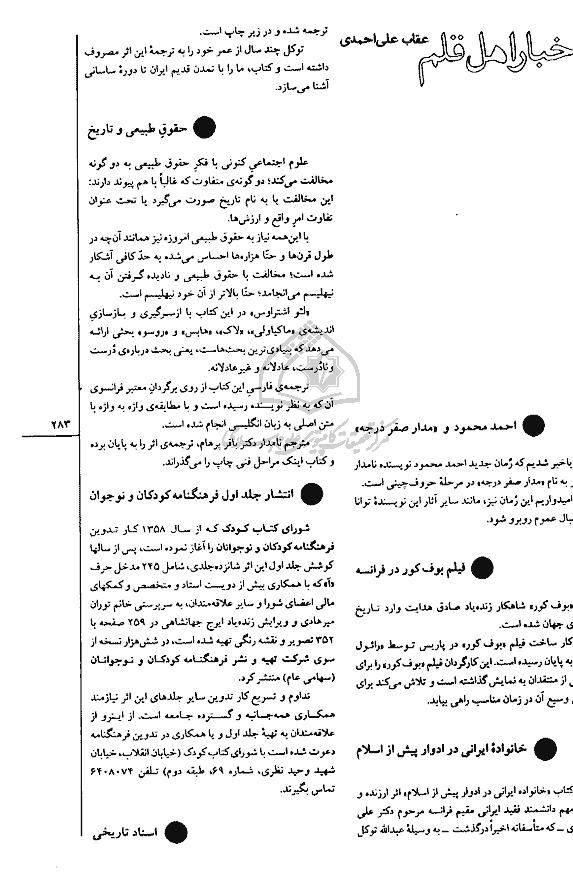 خبار اهل قلم
عقاب علی‌احمدی
احمد محمود و «مدار صفر درجه»
باخبر شدیم که رُمان جدید احمد محمود نویسنده نامدار
به نام «مدار صفر درجه» در مرحلهٔ حروف‌چینی است.
امیدواریم این رُمان نیز، مانند سایر آثار این نویسندهٔ توانا
بال عموم روبرو شود.
فیلم بوف کور در فرانسه
«بوف کور» شاهکار زنده‌یاد صادق هدایت وارد تاریخ
ی جهان شده است.
کار ساخت فیلم «بوف کور» در پاریس توسط «رائول
به پایان رسیده است. این کارگردان فیلم «بوف کور» را برای
از منتقدان به نمایش گذاشته است و تلاش می‌کند برای
وسیع آن در زمان مناسب راهی بیابد.
خانوادهٔ ایرانی در ادوار پیش از اسلام
کتاب «خانواده ایرانی در ادوار پیش از اسلام» اثر ارزنده و
مهم دانشمند فقید ایرانی مقیم فرانسه مرحوم دکتر علی
ی ـ که متأسفانه اخیراً درگذشت ـ به وسیلهٔ عبدالله توکل
ترجمه شده و در زیر چاپ است.
توکل چند سال از عمر خود را به ترجمهٔ این اثر مصروف
داشته است و کتاب، ما را با تمدن قدیم ایران تا دورهٔ ساسانی
آشنا می‌سازد.
حقوق طبیعی و تاریخ
علوم اجتماعیِ کنونی با فکرِ حقوق طبیعی به دو گونه
مخالفت می‌کند؛ دو گونه‌ی متفاوت که غالباً با هم پیوند دارند:
این مخالفت یا به نام تاریخ صورت می‌گیرد یا تحت عنوان
تفاوت امر واقع و ارزش‌ها.
با این‌همه نیاز به حقوق طبیعی امروزه نیز همانند آن‌چه در
طول قرن‌ها و حتّا هزاره‌ها احساس می‌شده به حدّ کافی آشکار
شده است؛ مخالفت با حقوق طبیعی و نادیده گرفتن آن به
نیهلیسم می‌انجامد؛ حتّا بالاتر از آن خود نیهلیسم است.
«لئو اشتراوس» در این کتاب با ازسرگیری و بازسازیِ
اندیشه‌ی «ماکیاولی»، «لاک»، «هابس» و «روسو» بحثی ارائه
می‌دهد که بنیادی‌ترین بحث‌هاست، یعنی بحث درباره‌ی دُرست
و نادُرست، عادلانه و غیرعادلانه.
ترجمه‌ی فارسیِ این کتاب از روی برگردانِ معتبر فرانسوی
آن که به نظر نویسنده رسیده است و با مطابقه‌ی واژه به واژه با
متن اصلی به زبان انگلیسی انجام شده است.
مترجم نامدار دکتر باقر پرهام، ترجمه‌ی اثر را به پایان برده
و کتاب اینک مراحل فنی چاپ را می‌گذراند.
انتشار جلد اول فرهنگنامه کودکان و نوجوان
شورای کتاب کودک که از سال ۱۳۵۸ کار تدوین
فرهنگنامه کودکان و نوجوانان را آغاز نموده است، پس از سالها
کوشش جلد اول این اثر شانزده‌جلدی، شامل ۲۴۵ مدخل حرف
«آ» که با همکاری بیش از دویست استاد و متخصص و کمکهای
مالی اعضای شورا و سایر علاقه‌مندان، به سرپرستی خانم توران
میرهادی و ویرایش زنده‌یاد ایرج جهانشاهی در ۲۵۹ صفحه با
۳۵۲ تصویر و نقشه رنگی تهیه شده است، در شش‌هزار نسخه از
سوی شرکت تهیه و نشر فرهنگنامه کودکان و نوجوانان
(سهامی عام) منتشر کرد.
تداوم و تسریع کار تدوین سایر جلدهای این اثر نیازمند
همکاری همه‌جانبه و گسترده جامعه است. از اینرو از
علاقه‌مندان به تهیهٔ جلد اول و یا همکاری در تدوین فرهنگنامه
دعوت شده است با شورای کتاب کودک (خیابان انقلاب، خیابان
شهید وحید نظری، شماره ۶۹، طبقه دوم) تلفن ۶۴۰۸۰۷۴
تماس بگیرند.
اسناد تاریخی
۲۸۳